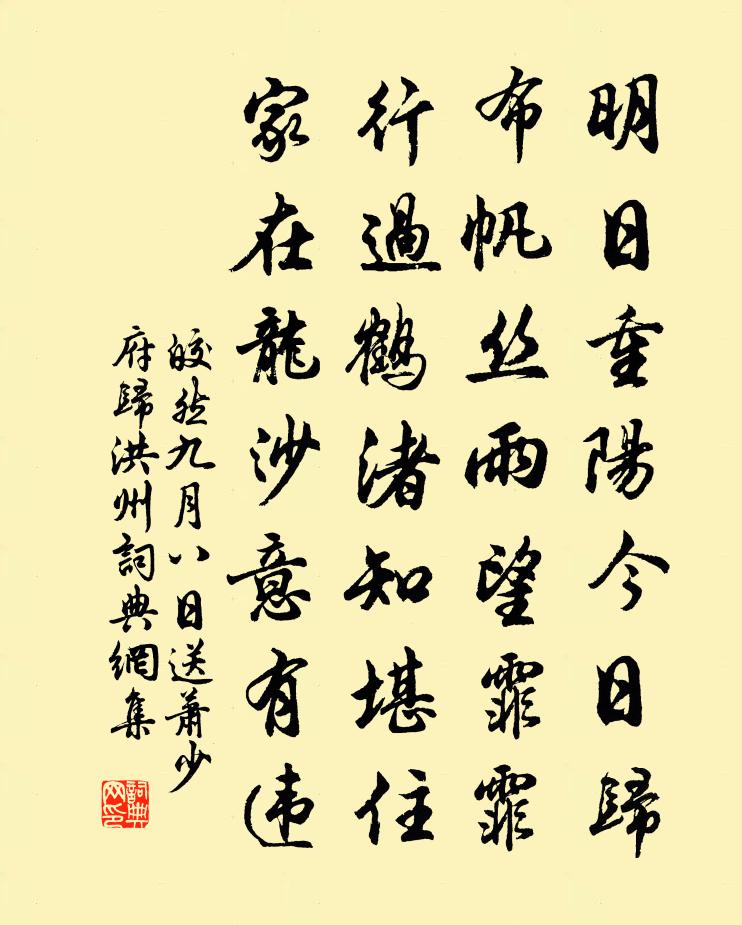 明日重陽今日歸
布帆丝雨望霏霏
行過鶴渚知堪住
家在龍沙意有违
皎然九月八日送蕭少
府歸洪州詞典網集
詞典网印